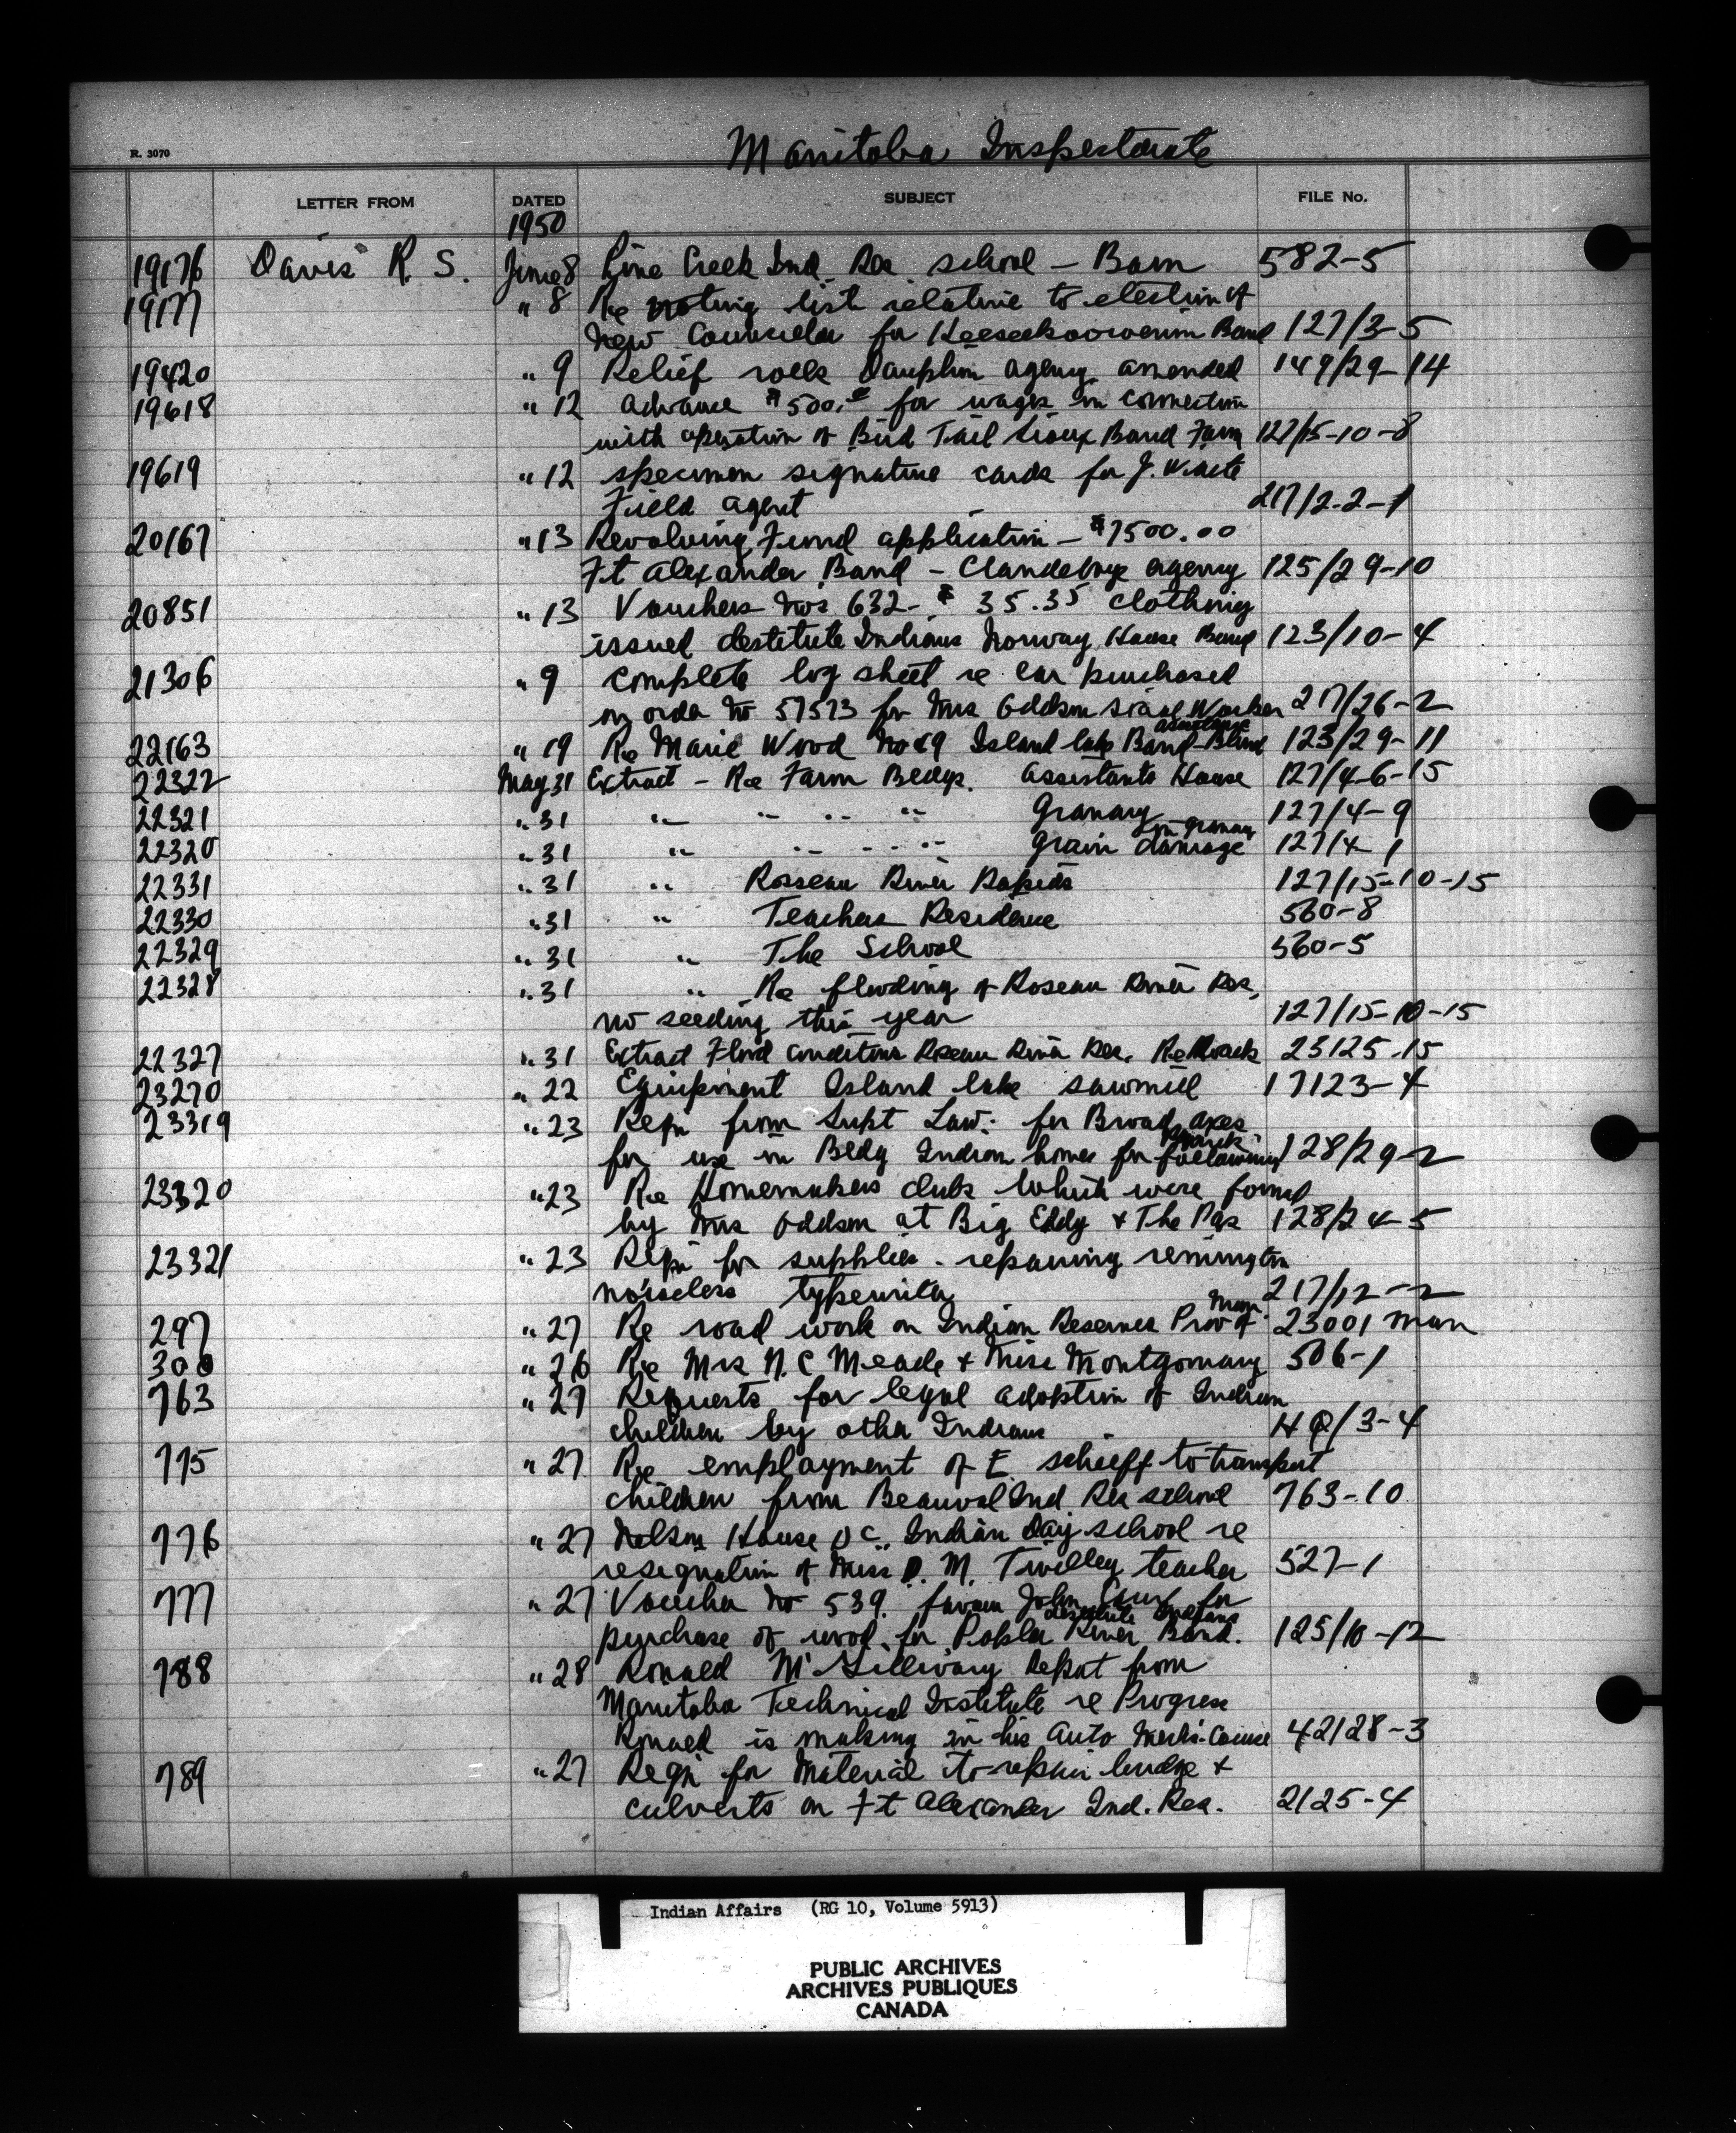 Manitoba Inspectorate
R. 3070
LETTER FROM DATED SUBJECT FILE No.
1950
19176 Davis R. S. June 8 Pine Creek Ind Res school - Barn 582-5
19177 " 8 Re voting list relative to election of
new Councilor for Keeseekoowenin Band 127/3-5
19420 " 9 Relief rolls Dauphin agency amended 149/29-14
19618 " 12 advance $500.00 for wages in connection
with operation of Bird Tail Sioux Band Farm 127/15-10-8
19619 " 12 specimen signature cards for J. Waite
Field agent 217/2-2-1
20167 " 13 Revolving Fund application - $7500.00
Ft Alexander Band - Clandeboye agency 125/29-10
20851 " 13 Vouchers Nos 632- $35.35 clothing
issued destitute Indians Norway House Band 123/10-4
21306 " 9 Complete log sheet re car purchased
on order No 57573 for Mrs Oddson social Worker 217/26-2
assistance
22163 " 19 Re Marie Wood No 49 Island lake Band-Blind 123/29-11
22322 May 31 Extract - Re Farm Bldgs. Assistants House 127/4-6-15
22321 " 31 " " " " Granary 127/4-9
in granary
22320 " 31 " " " " " Grain damage 127/4-1
22331 " 31 " Rosseau River Rapids 127/15-10-15
22330 " 31 " Teachers Residence 560-8
22329 " 31 " The School 560-5
22328 " 31 " Re flooding of Roseau River Res,
no seeding this year 127/15-10-15
22327 " 31 Extract Flood conditions Roseau River Res. Re Roads 23125-15
23270 " 22 Equipment Island lake sawmill 17123-4
23319 " 23 Reqn from Supt Law: for Broad axes
for use in Bldg Indian homes for following 128/29-2
23320 " 23 Re Homemakers clubs which were formed
by Mrs Oddson at Big Eddy & The Pas 128/24-5
23321 " 23 Reqn for supplies - repairing remington
noiseless typewriter 217/12-2
Man.
297 " 27 Re road work on Indian Reserves Prov of 23001 man
300 " 26 Re Mrs N. C Meade & Miss Montgomary 506-1
763 " 27 Requests for legal adoption of Indian
children by other Indians HQ/3-4
775 " 27 Re employment of E. schieff to transport
children from Beauval Ind Res school 763-10
776 " 27 Nelson House Indian Day school re
resignation of Miss D. M. Twilley teacher 527-1
777 " 27 Voucher No 539. favour John for
destitute Indians
purchase of wood for Poplar River Band. 125/10-12
788 " 28 Ronald McGillivary Report from
Manitoba Technical Institute re Progress
Ronald is making in his Auto Mech. Course 42128-3
789 " 27 Reqn for material to repair bridge &
culverts on Ft Alexander Ind. Res. 2125-4
Indian Affairs (RG 10, Volume 5913)
PUBLIC ARCHIVES
ARCHIVES PUBLIQUES
CANADA